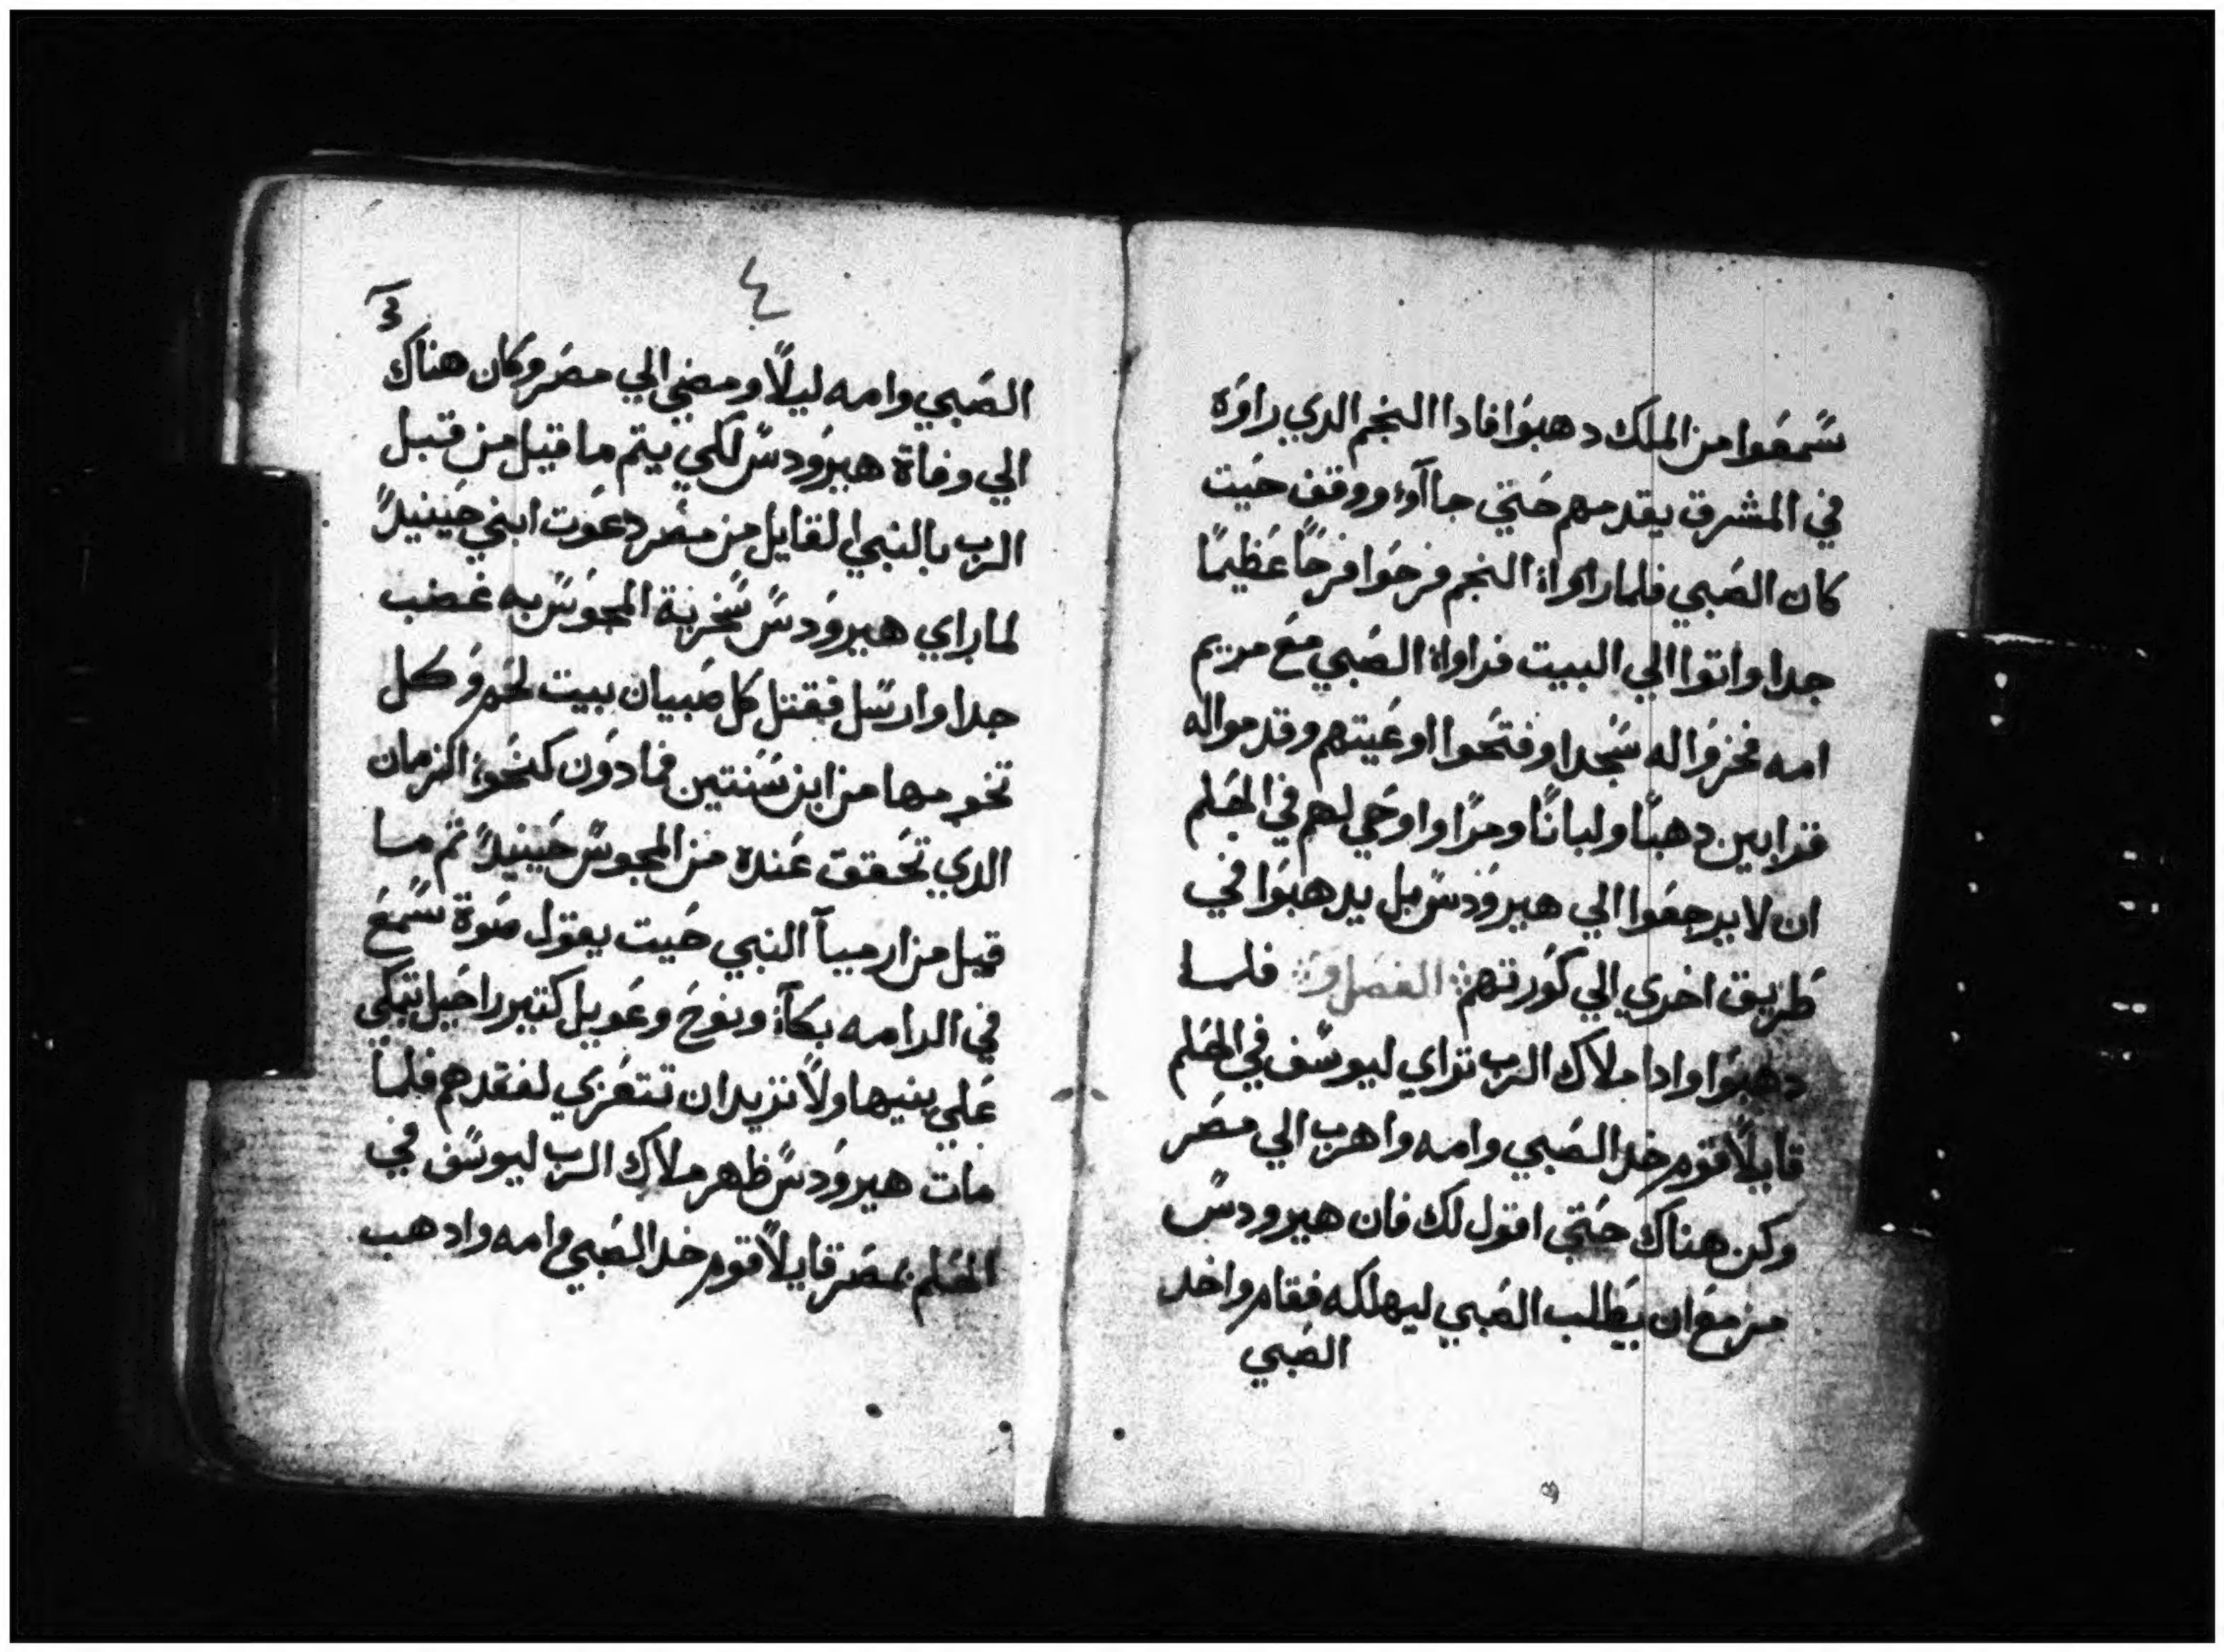 سَمعَوا من الملك دهبوَا فاداا النجم الدي راوَه
في المشرق يقدمهم حَتي جاآوء ووقف حَيت
كان الصَبي فلما راواه النجم فرحوَا فرحًا عَظيمًا
جدا واتوا الي البيت فراواه الصَبي معَ مريم
امه فخروَا له سَجدا وفتحَوا اوعَيتهم وقدموا له
قرابين دهبًا ولبانًا ومرًا واوحَي لهم في الحَلم
ان لا يرجعَوا الي هيروَدسَ بل يدهبوَا في
طَريق اخري الي كوَرتهم الفصَل و فلما
دهبوَا وادا ملاك الرب تراي ليوسَف في الحَلم
قايلًا قوم خد الصَبي وامه واهرب الي مصَر
وكن هناك حتي اقول لك فان هيرودسَ
مزمعَ ان يطَلب الصَبي ليهلكه فقام واخد
الصَبي
٤
3
الصَبي وامه ليلًا ومضي الي مصَر وكان هناك
الي وفاة هيروَدسَ لكي يتم ما قيل من قبل
الرب بالنبي القايل من مصَر دعَوت ابني حَينيدً
لما راي هيروَدسَ سَخرية المجوسَ به غضب
جدا وارسَل فقتل كل صَبيان بيت لحَم وَكل
تخومها من ابن سَنتين فما دوَن كنحَو الزمان
الدي تحَقق عَنده من المجوسَ حَينيدً تم ما
قيل من ارميآ النبي حَيت يقول صَوة سَمعَ
في الرامه بكآء ونوحَ وعَويل كتير راحَيل تبكي
عَلي بنيها ولا تريد ان تتعَزي لفقدهم فلما
مات هيروَدسَ ظهر ملاك الرب ليوسَف في
الحَلم بمصَر قايلًا قوم خد الصَبي وامه وادهب